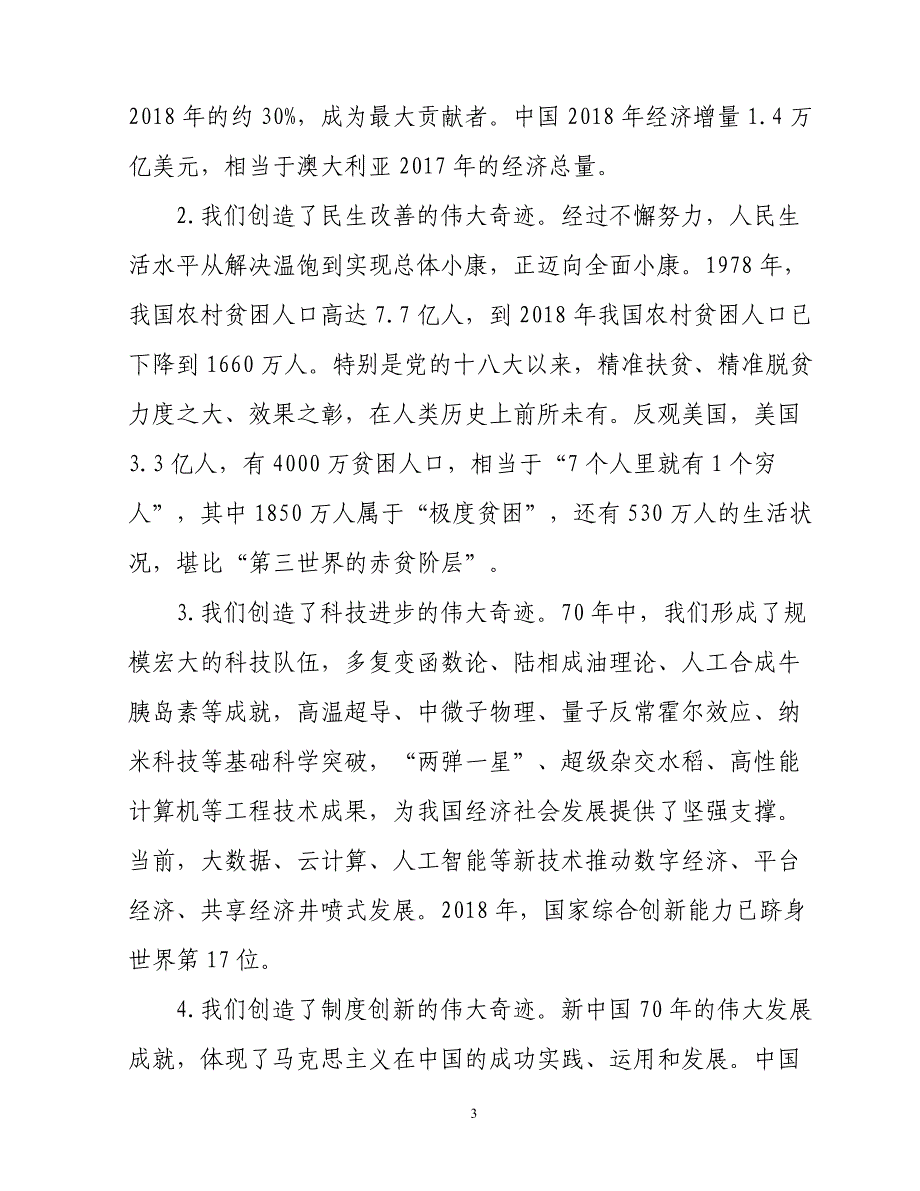 2018 年的约 30%，成为最大贡献者。中国 2018 年经济增量 1.4 万
亿美元，相当于澳大利亚 2017 年的经济总量。
2.我们创造了民生改善的伟大奇迹。经过不懈努力，人民生
活水平从解决温饱到实现总体小康，正迈向全面小康。1978 年，
我国农村贫困人口高达 7.7 亿人，到 2018 年我国农村贫困人口已
下降到 1660 万人。特别是党的十八大以来，精准扶贫、精准脱贫
力度之大、效果之彰，在人类历史上前所未有。反观美国，美国
3.3 亿人，有 4000 万贫困人口，相当于“7 个人里就有 1 个穷
人”，其中 1850 万人属于“极度贫困”，还有 530 万人的生活状
况，堪比“第三世界的赤贫阶层”。
3.我们创造了科技进步的伟大奇迹。70 年中，我们形成了规
模宏大的科技队伍，多复变函数论、陆相成油理论、人工合成牛
胰岛素等成就，高温超导、中微子物理、量子反常霍尔效应、纳
米科技等基础科学突破，“两弹一星”、超级杂交水稻、高性能
计算机等工程技术成果，为我国经济社会发展提供了坚强支撑。
当前，大数据、云计算、人工智能等新技术推动数字经济、平台
经济、共享经济井喷式发展。2018 年，国家综合创新能力已跻身
世界第 17 位。
4.我们创造了制度创新的伟大奇迹。新中国 70 年的伟大发展
成就，体现了马克思主义在中国的成功实践、运用和发展。中国
3